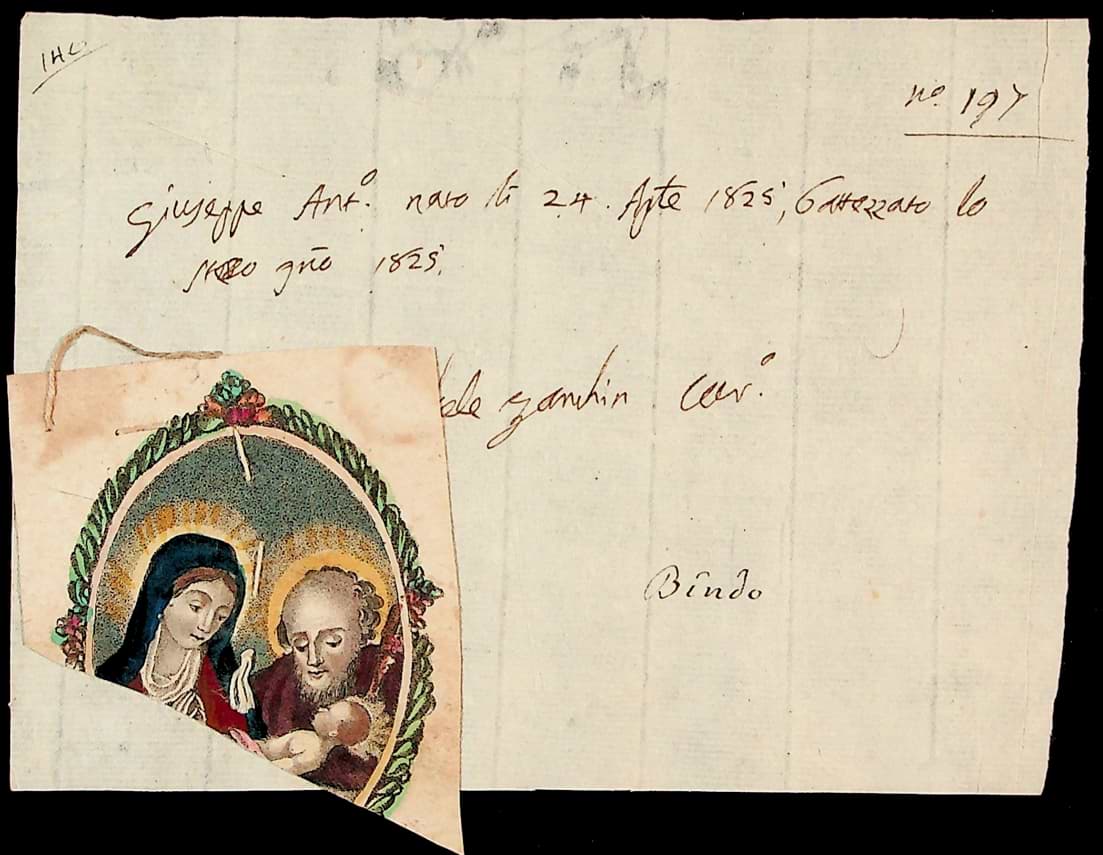 140
nº 197
Giuseppe Antº. nato li 24. Apte 1825, battezzato lo
stesso gño 1825.
Zanchin Curº.
Bindo